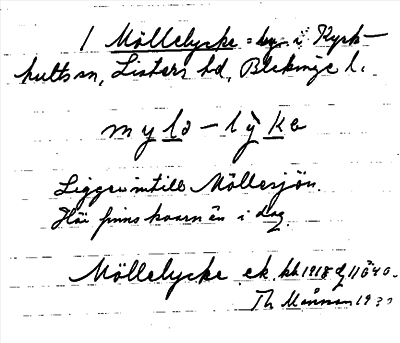 1 Möllelycke = by i Kyrk-
hults sn, Listers hd, Blekinge l.
mylə – lỳkə
Ligger intill Möllesjön.
Här finns kvarn än i dag.
Möllelycke ek. bl. 1918
Th 19